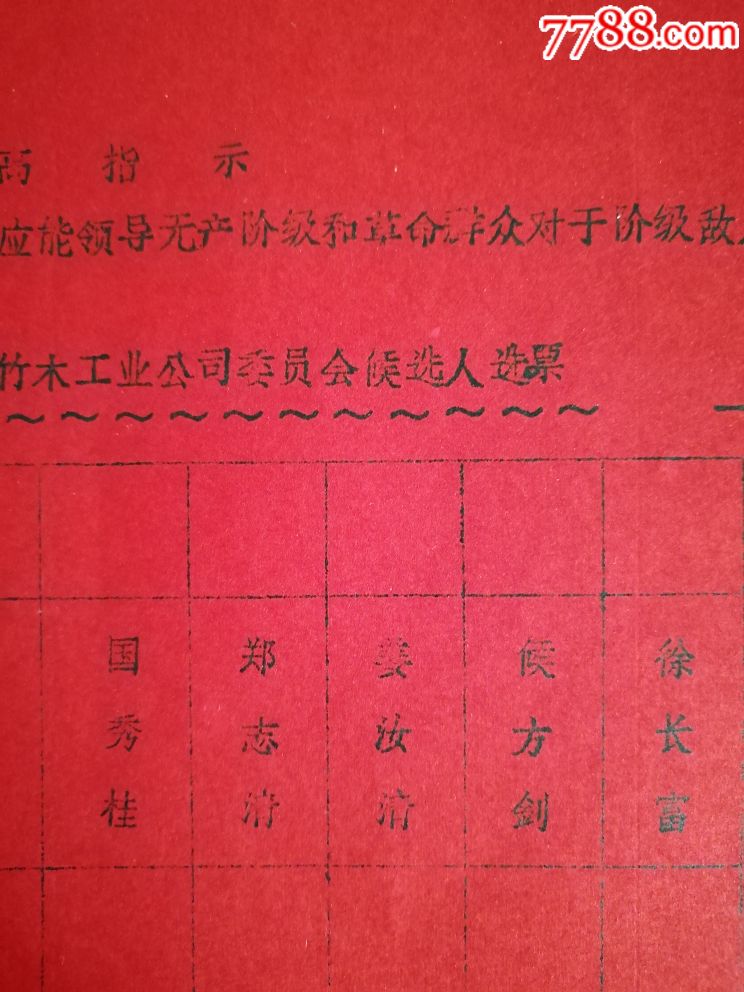 7788.com
高 指 示
应能领导无产阶级和革命群众对于阶级敌
竹木工业公司委员会候选人选票
国秀桂
郑志清
姜汝清
候方剑
徐长富